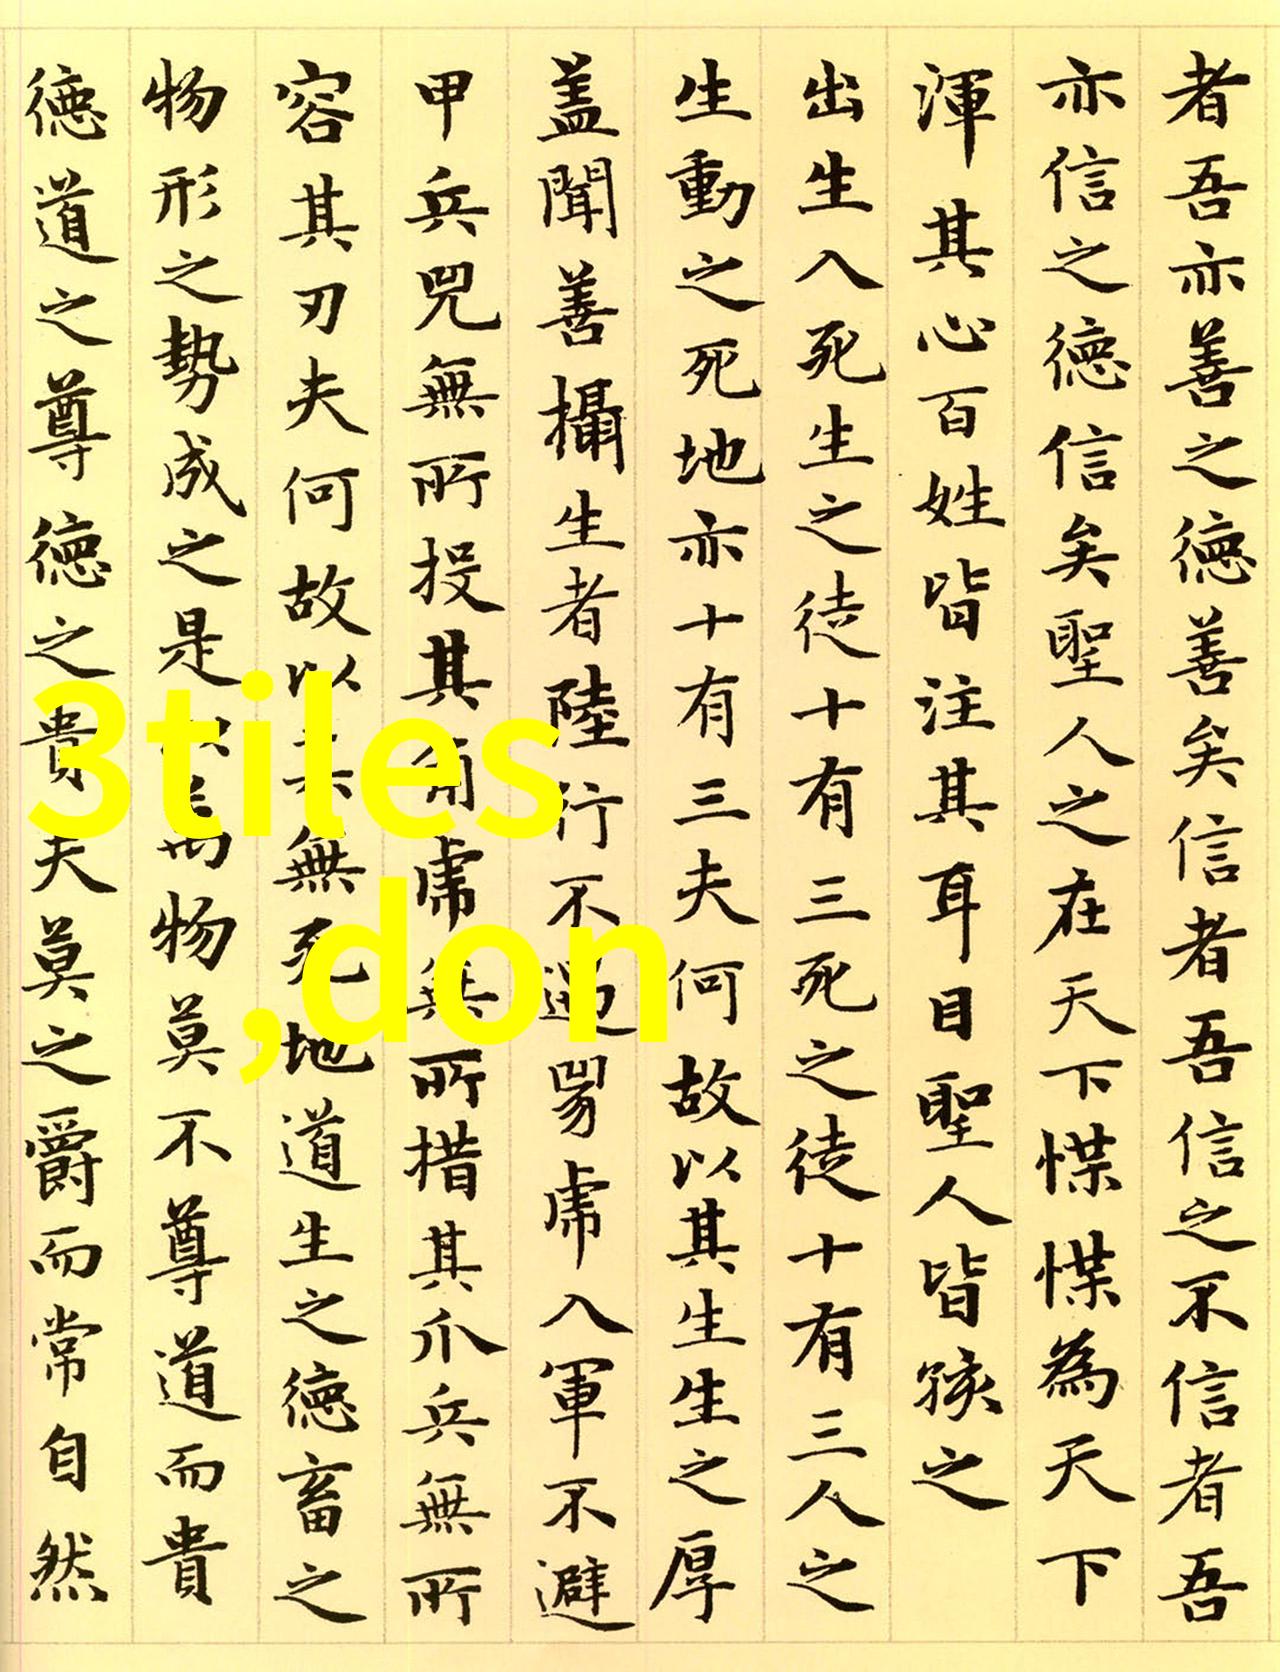 者吾亦善之德善矣信者吾信之不信者吾
亦信之德信矣聖人之在天下惵惵為天下
渾其心百姓皆注其耳目聖人皆孩之
出生入死生之徒十有三死之徒十有三人之
生動之死地亦十有三夫何故以其生生之厚
盖聞善攝生者陸行不遇兕虎入軍不避
甲兵兕無所投其角虎無所措其爪兵無所
容其刃夫何故以其無死地道生之德畜之
物形之勢成之是以萬物莫不尊道而貴
德道之尊德之貴夫莫之爵而常自然
3tiles
,don